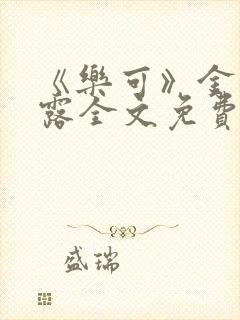 《樂可》金
露全文免費
盛瑞